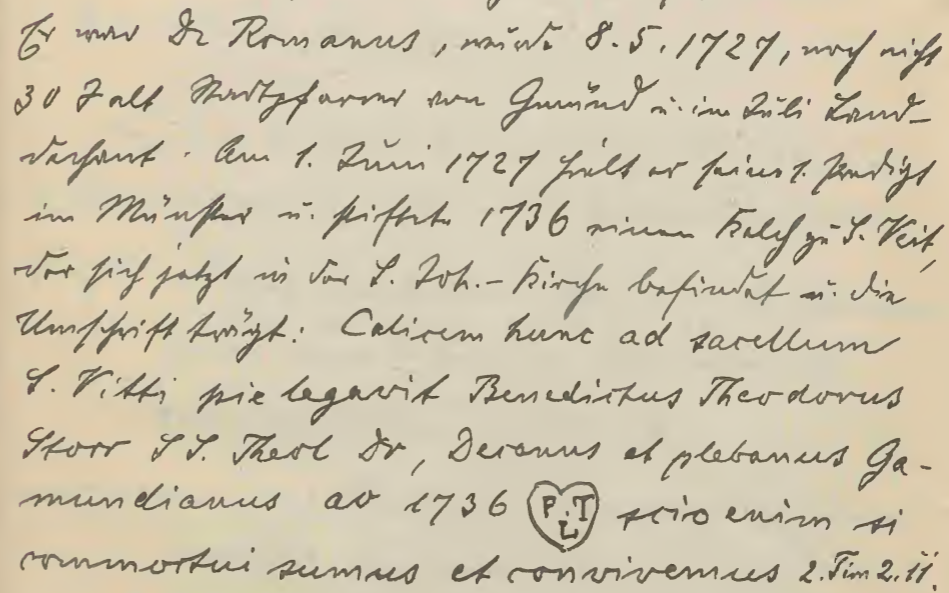 Er war Dr Romanus, wurde 8.5.1727, noch nicht
30 J alt Stadtpfarrer von Gmünd u. im Juli Land-
dechant. Am 1. Juni 1727 hielt er seine 1. Predigt
im Münster u. stiftete 1736 einen Kelch zu S. Veit,
der sich jetzt in der S. Joh.- Kirche befindet u. die
Umschrift trägt: Calicem hunc ad sacellum
S. Vitti pie legavit Benedictus Theodorus
Storr S S. Theol Dr, Decanus et plebanus Ga-
mundianus ao 1736 P.T L scio enim si
commortui sumus et convivemus 2. Tim 2. 11.